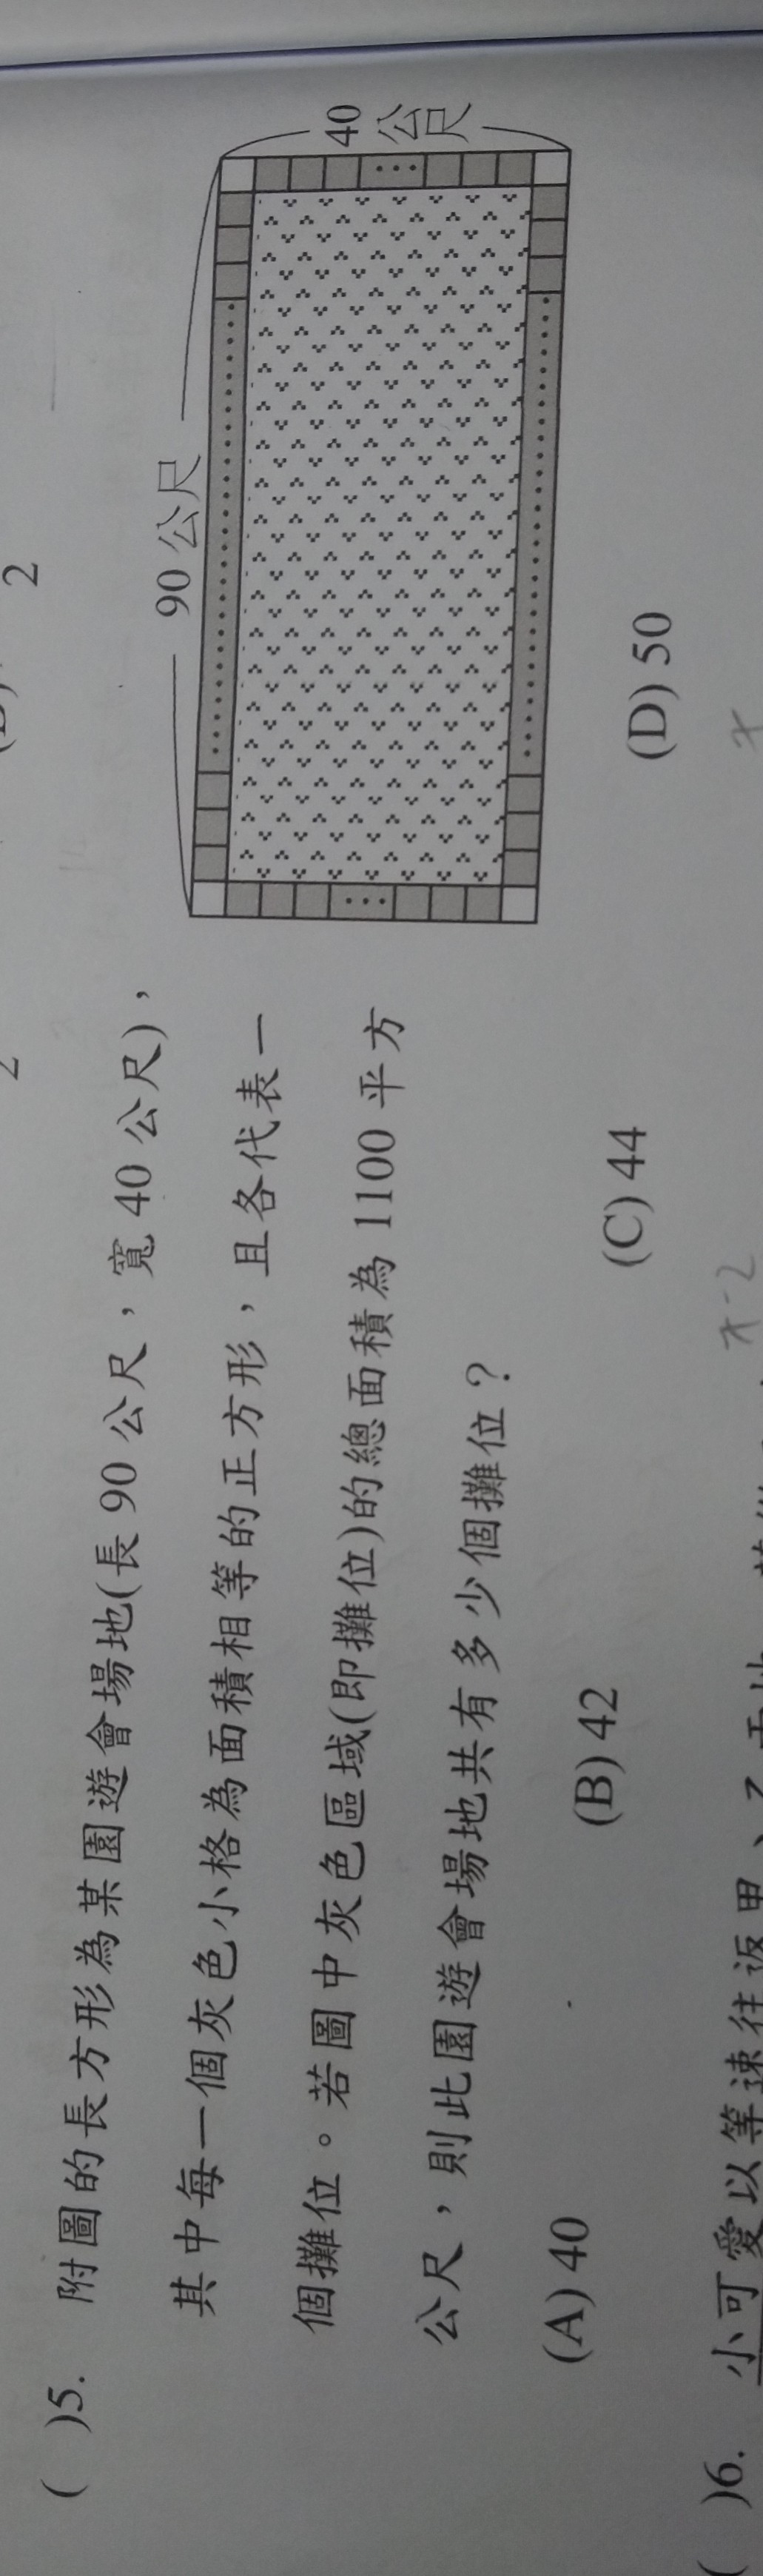 2
2
( )5. 附圖的長方形為某園遊會場地(長 90 公尺，寬 40 公尺)，
其中每一個灰色小格為面積相等的正方形，且各代表一
個攤位。若圖中灰色區域(即攤位)的總面積為 1100 平方
公尺，則此園遊會場地共有多少個攤位？
90 公尺
40 公尺
(A) 40 (B) 42 (C) 44 (D) 50
x-2 x
( )6. 小可愛以等速往返甲、乙